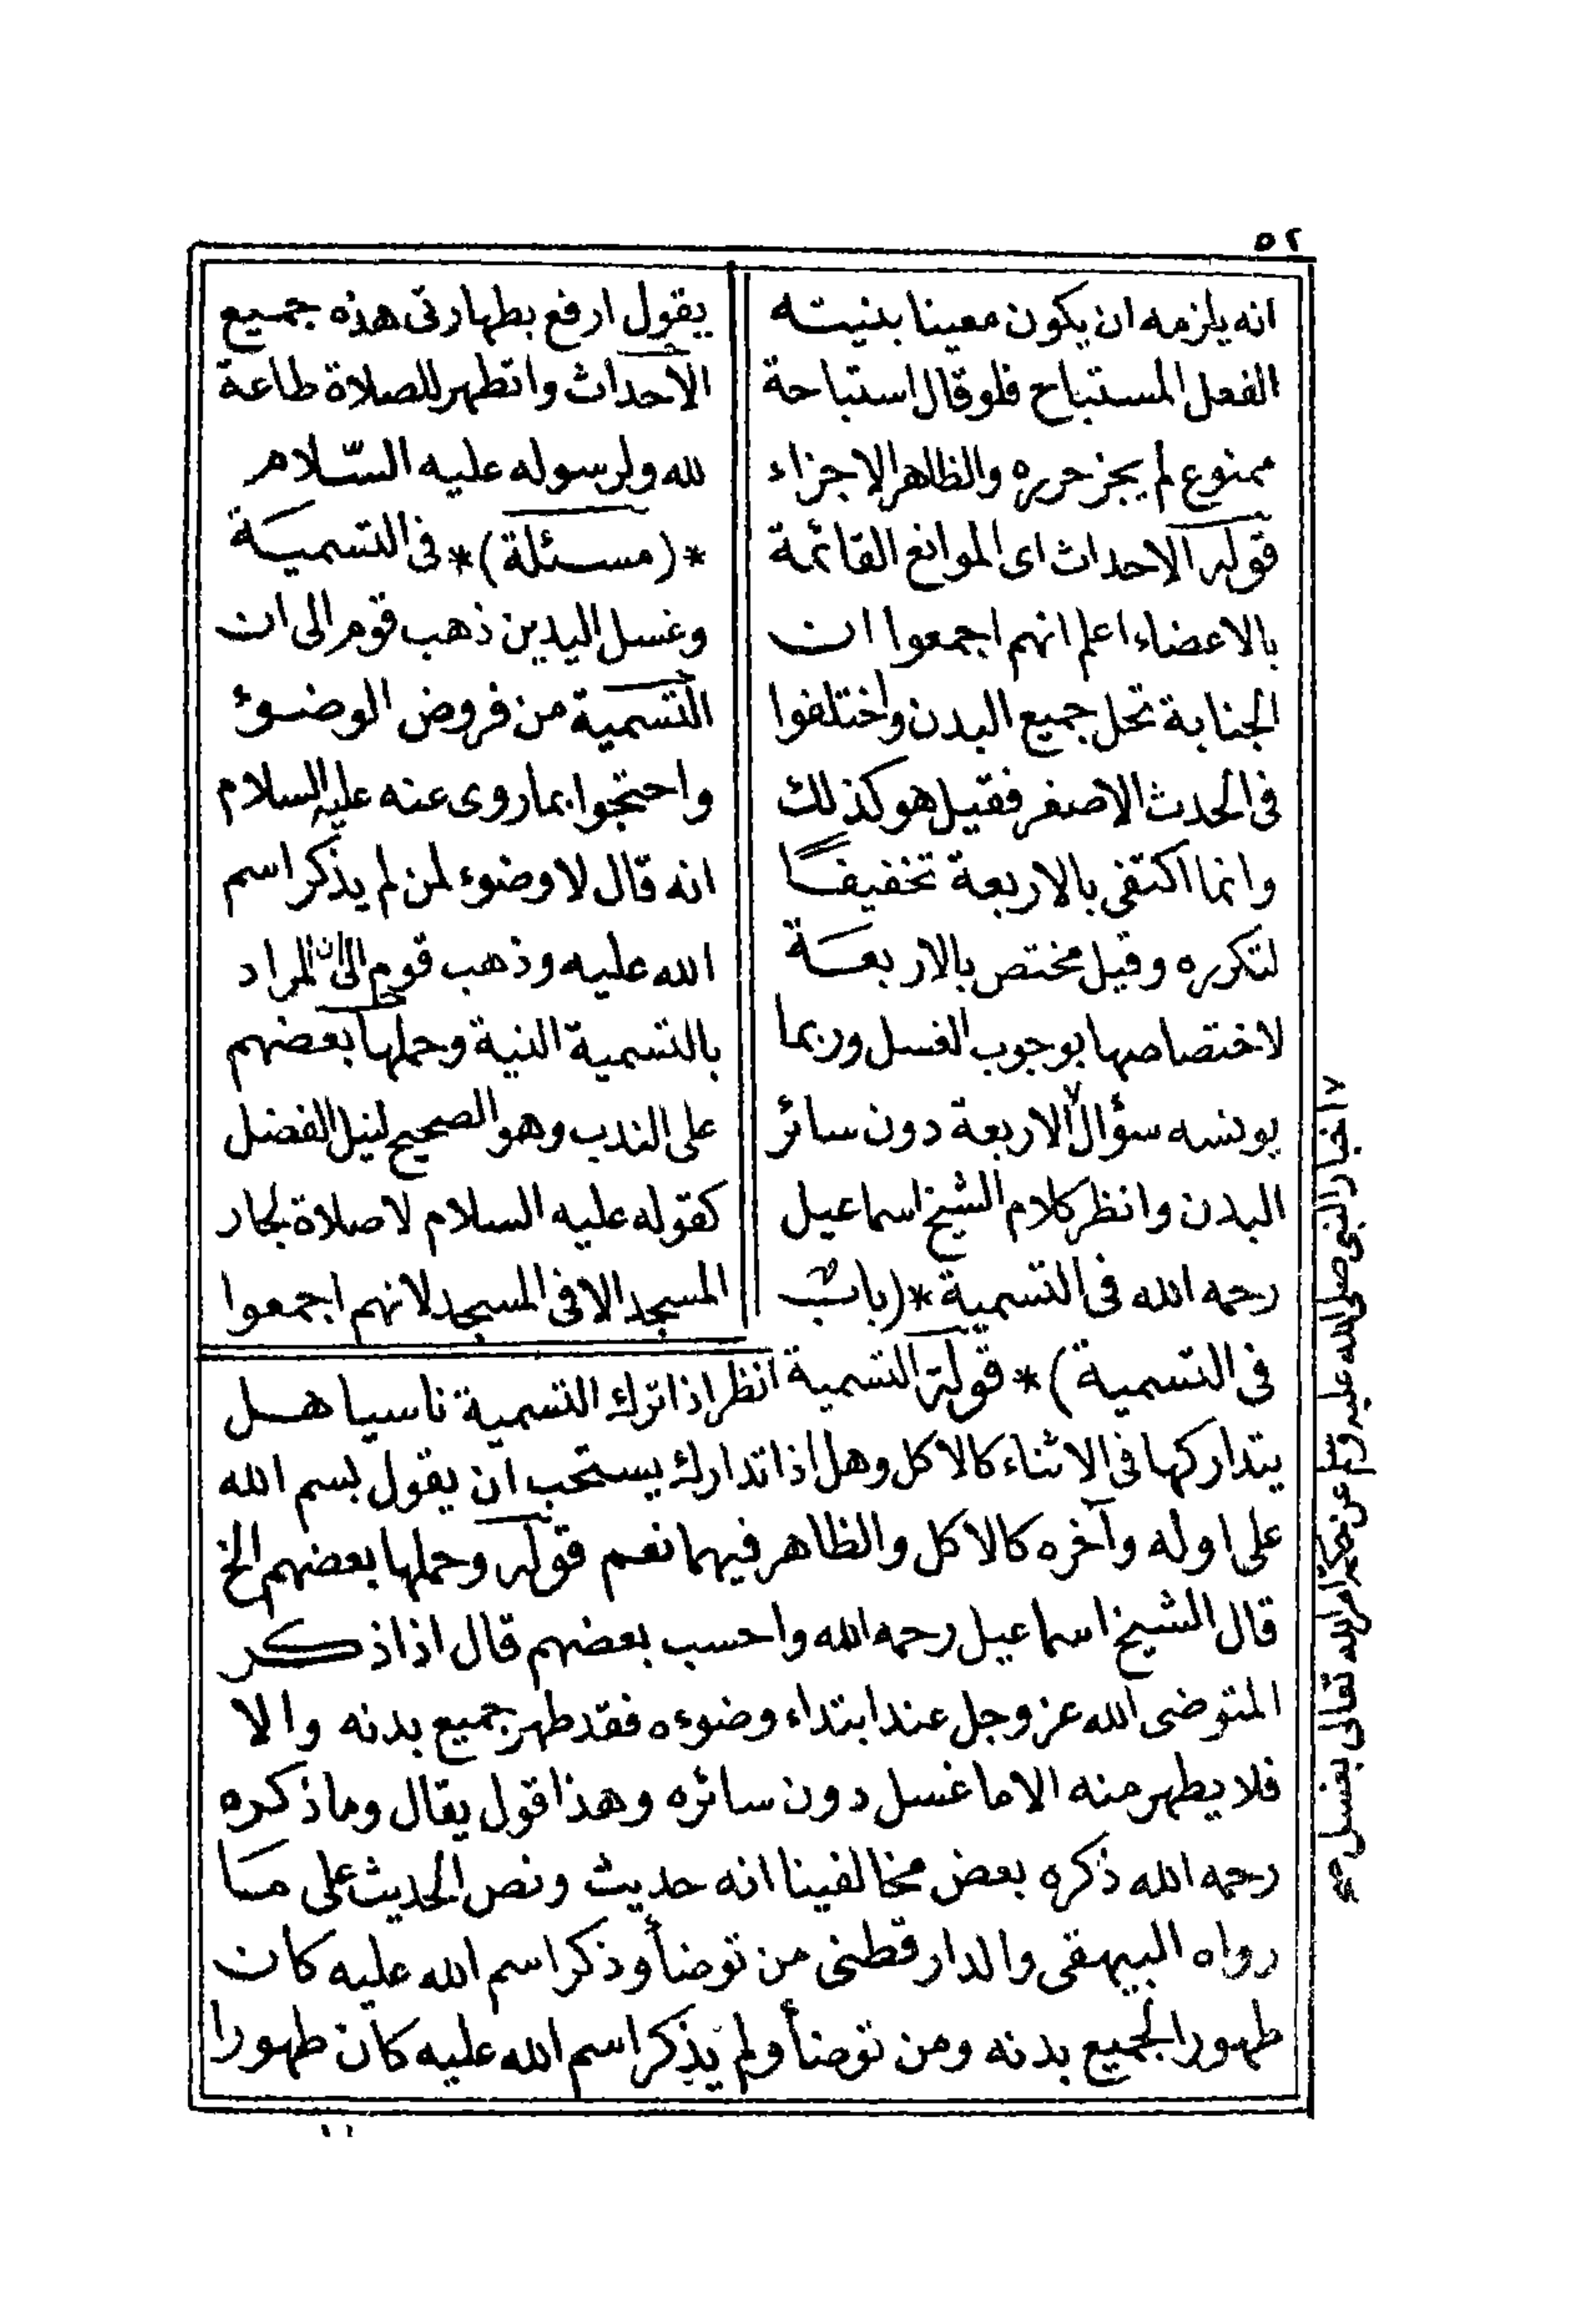 ٥٢
انه يلزمه ان يكون معينا بنيته
الفعل المستباح فلو قال استباحة
ممنوع لم يجز حرره والظاهر الاجزاء
قوله الاحداث اى الموانع القائمة
بالاعضاء اعلم انهم اجمعوا ان
الجنابة تحل جميع البدن واختلفوا
فى الحدث الاصغر فقيل هو كذلك
وانما اكتفى بالاربعة تخفيفًا
لتكرره وقيل مختص بالاربعة
لاختصاصها بوجوب الغسل وربما
يونسه سؤال٧ الاربعة دون سائر
البدن وانظر كلام الشيخ اسماعيل
رحمه الله فى التسمية *(باب
يقول ارفع بطهارتى هذه جميع
الأحداث واتطهر للصلاة طاعة
لله ولرسوله عليه السّلام
*(مسئلة)* فى التسمية
وغسل اليدين ذهب قوم الى ان
التسمية من فروض الوضوء
واحتجوا بما روى عنه عليه السلام
انه قال لا وضوء لمن لم يذكر اسم
الله عليه وذهب قوم الى ان المراد
بالتسمية النية وحملها بعضهم
على الندب وهو الصحيح لنيل الفضل
كقوله عليه السلام لا صلاة لجار
المسجد الا فى المسجد لانهم اجمعوا
فى التسمية)* قوله التسمية انظر اذا ترك التسمية ناسيا هل
يتداركها فى الاثناء كالاكل وهل اذا تدارك يستحب ان يقول بسم الله
على اوله وآخره كالاكل والظاهر فيهما نعم قوله وحملها بعضهم الخ
قال الشيخ اسماعيل رحمه الله واحسب بعضهم قال اذا ذكر
المتوضى الله عز وجل عند ابتداء وضوءه فقد طهر جميع بدنه والا
فلا يطهر منه الا ما غسل دون سائره وهذا قول يقال وما ذكره
رحمه الله ذكره بعض مخالفينا انه حديث ونص الحديث على ما
رواه البيهقى والدارقطنى من توضأ وذكر اسم الله عليه كان
طهورا لجميع بدنه ومن توضأ ولم يذكر اسم الله عليه كان طهورا
٧ اخبار النبى صلى الله عليه وسلم عن حكمة امر الله تعالى بغسل